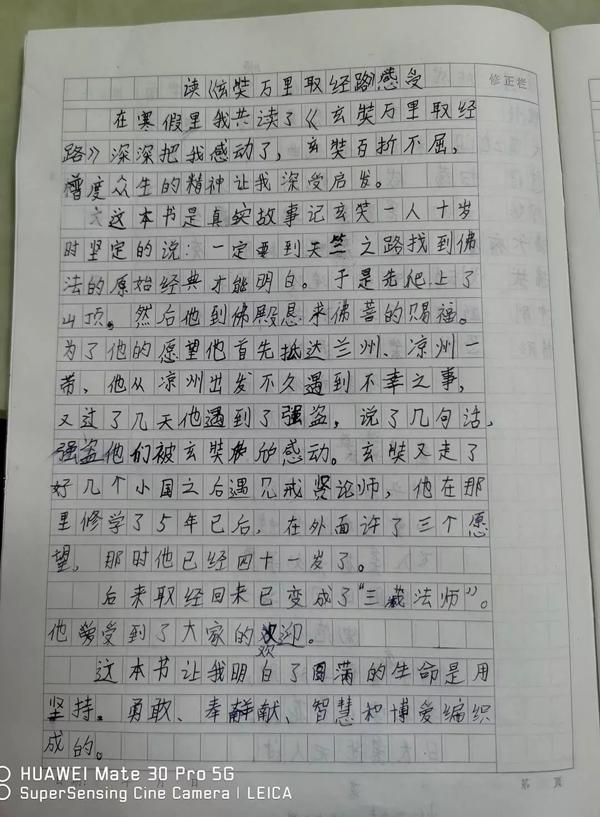 读《玄奘万里取经路》感受
修正栏
在寒假里我共读了《玄奘万里取经
路》深深把我感动了，玄奘百折不屈，
度众生的精神让我深受启发。
这本书是真实故事记玄奘一人十岁
时坚定的说：一定要到天竺之路找到佛
法的原始经典才能明白。于是先爬上了
山顶。然后他到佛殿恳求佛菩的赐福。
为了他的愿望他首先抵达兰州、凉州一
带，他从凉州出发不久遇到不幸之事，
又过了几天他遇到了强盗，说了几句话，
强盗他们被玄奘的感动。玄奘又走了
好几个小国之后遇见戒贤论师，他在那
里修学了5年已后，在外面许了三个愿
望，那时他已经四十一岁了。
后来取经回来已变成了“三藏法师”。
他受到了大家的欢迎。
这本书让我明白了圆满的生命是用
坚持。勇敢、奉献、智慧和博爱编织
成的。
月 日
第 页
HUAWEI Mate 30 Pro 5G
SuperSensing Cine Camera | LEICA